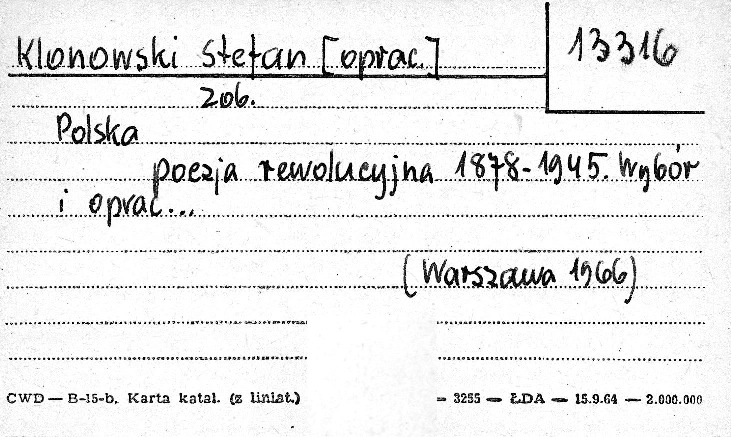 Klonowski Stefan [oprac.]
13316
zob.
Polska
poezja rewolucyjna 1878-1945. Wybór
i oprac...
(Warszawa 1966)
CWD — B-15-b. Karta katal. (z liniat.)
— 3255 — ŁDA — 15.9.64 — 2.000.000